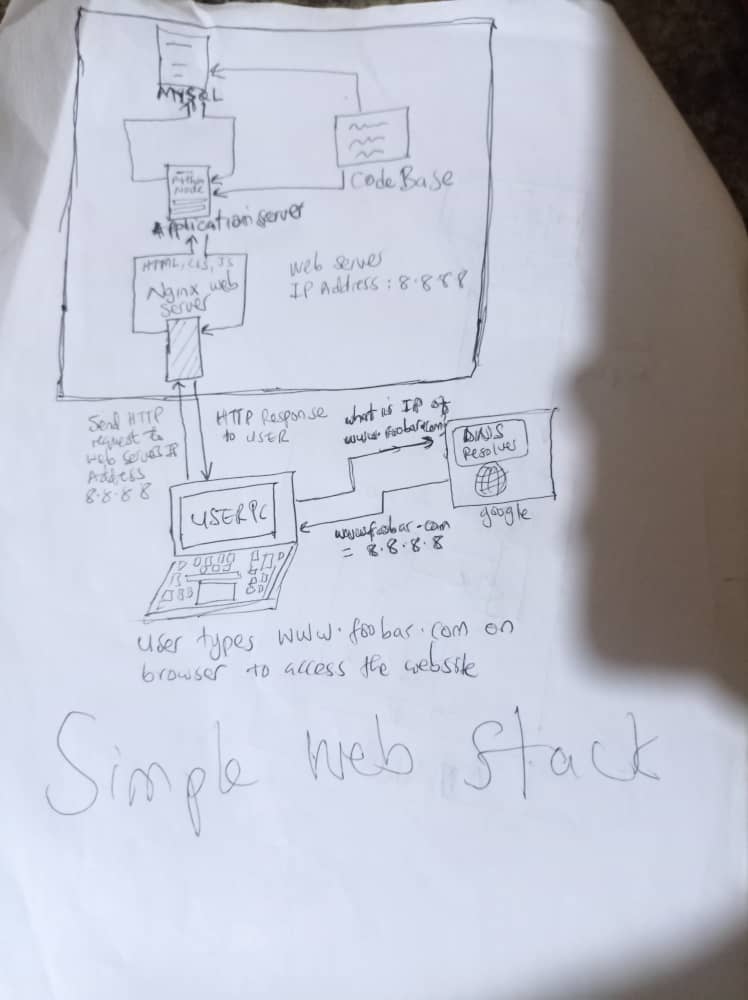 MySQL
Python
Node
Application server
Code Base
HTML, CSS, JS
Nginx web
server
web server
IP Address : 8.8.8.8
Send HTTP
request to
web server IP
Address
8.8.8.8
HTTP Response
to USER
what is IP of
www.foobar.com
DNS
Resolver
google
www.foobar.com
= 8.8.8.8
USER PC
user types www.foobar.com on
browser to access the website
Simple web stack